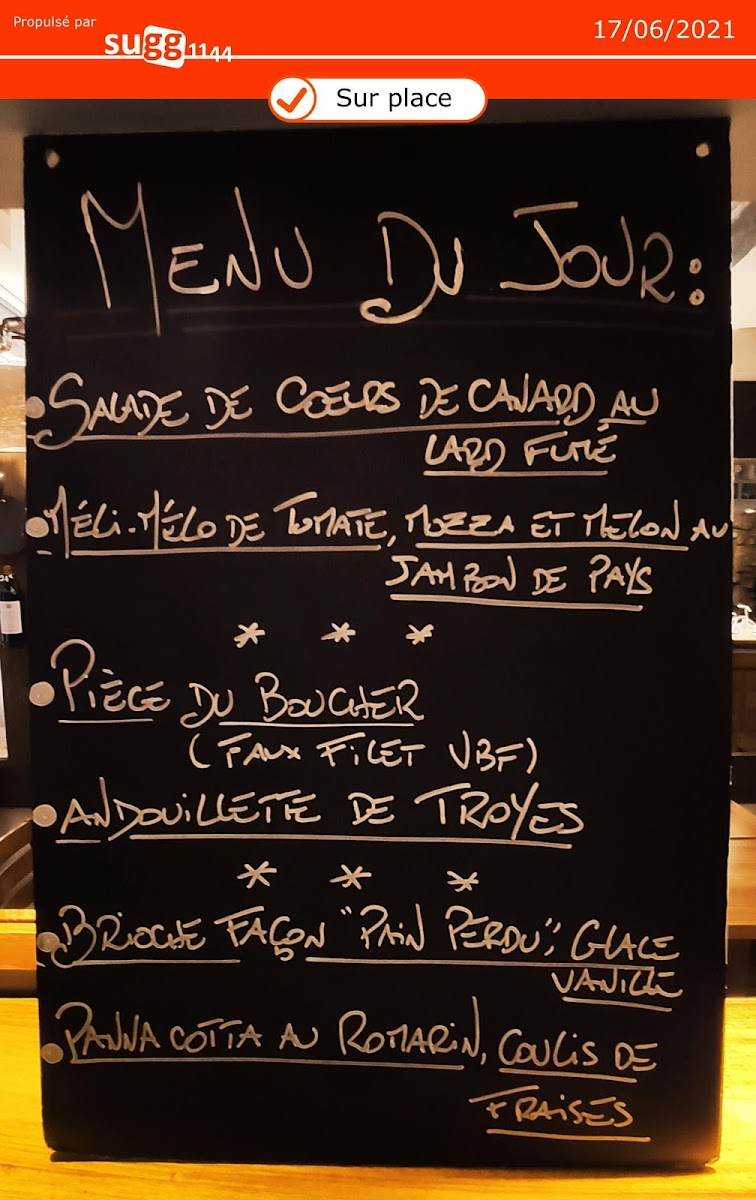 Propulsé par
sugg1144
17/06/2021
Sur place
MENU DU JOUR:
SALADE DE CŒURS DE CANARD AU
LARD FUMÉ
MÉLI-MÉLO DE TOMATE, MOZZA ET MELON AU
JAMBON DE PAYS
* * *
PIÈCE DU BOUCHER
(FAUX FILET VBF)
ANDOUILLETTE DE TROYES
* * *
BRIOCHE FAÇON "PAIN PERDU", GLACE
VANILLE
PANNA COTTA AU ROMARIN, COULIS DE
FRAISES